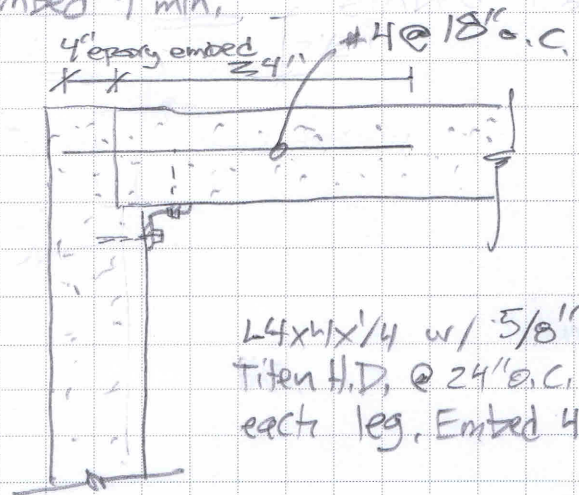 mbed 4" min.
#4 @ 18" o.C.
4" epoxy embed
24"
L4x4x1/4 w/ 5/8"
Titen H.D. @ 24" o.C.
each leg. Embed 4